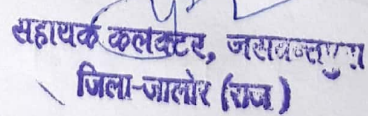 सहायक कलक्टर, जसवन्तपुरा
जिला-जालोर (राज)